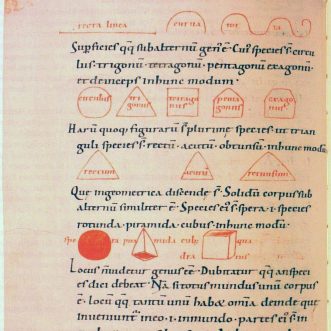 recta linea curua tor ua
Supficies qq; subalternū gen' ē· Cui' species s· circu
lus· trigonū· tetragonū· pentagonū exagonū·
et deinceps in hunc modum·
circulus tri gonus tetrag onus pen tagonus exag onus
Harū quoq; figurarū s· plurimę species· ut trian
guli species s· rectū· acutū· obtunsū· in hunc modū·
rectum acutū retunsum
Que in geometrica discende s· Solidū corpus sub
alternū similiter ē· Species ei' s· spera· i· species
rotunda· piramida· cubus· in hunc modū·
spe ra pira mida cub us dra
Locus inuidetur genus eē· Dubitatur q; an speci
es dici debeat· Nā si totus mundus unū corpus
ē· locū q; tantum unū habet omīa deinde quę
inueniunt' in eo· i· in mundo· partes ei' s· in